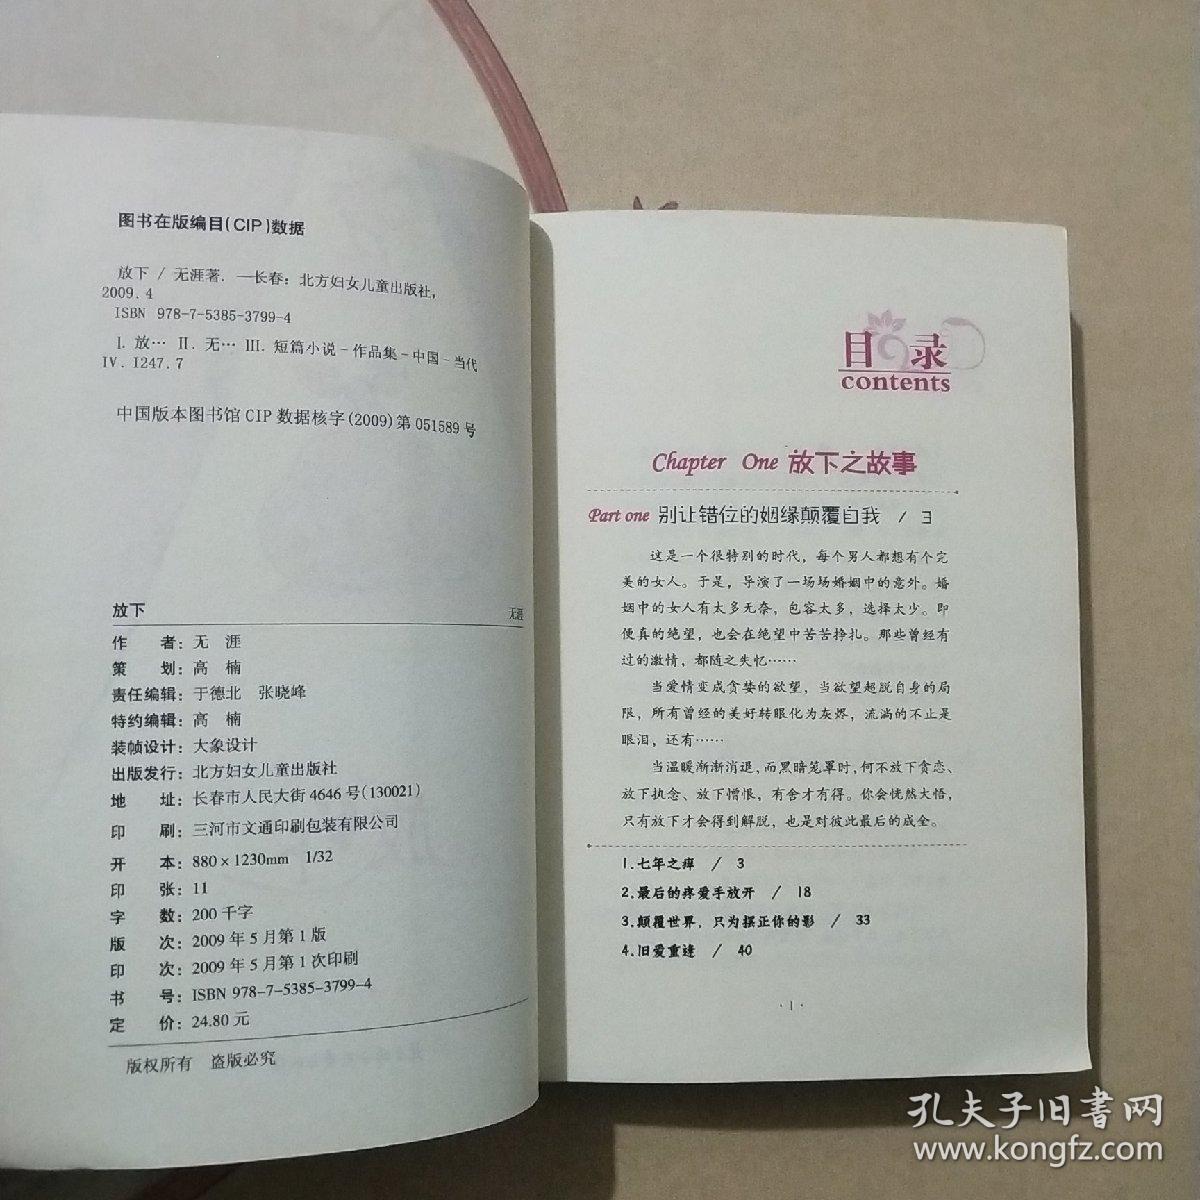 图书在版编目(CIP)数据
放下 / 无涯著. —长春: 北方妇女儿童出版社,
2009.4
ISBN 978-7-5385-3799-4
Ⅰ. 放… Ⅱ. 无… Ⅲ. 短篇小说－作品集－中国－当代
Ⅳ. I247.7
中国版本图书馆CIP数据核字(2009)第051589号
放下 无涯
作 者: 无 涯
策 划: 高 楠
责任编辑: 于德北 张晓峰
特约编辑: 高 楠
装帧设计: 大象设计
出版发行: 北方妇女儿童出版社
地 址: 长春市人民大街4646号(130021)
印 刷: 三河市文通印刷包装有限公司
开 本: 880×1230mm 1/32
印 张: 11
字 数: 200千字
版 次: 2009年5月第1版
印 次: 2009年5月第1次印刷
书 号: ISBN 978-7-5385-3799-4
定 价: 24.80元
版权所有 盗版必究
目录
contents
Chapter One 放下之故事
Part one 别让错位的姻缘颠覆自我 / 3
这是一个很特别的时代，每个男人都想有个完
美的女人。于是，导演了一场场婚姻中的意外。婚
姻中的女人有太多无奈，包容太多，选择太少。即
便真的绝望，也会在绝望中苦苦挣扎。那些曾经有
过的激情，都随之失忆……
当爱情变成贪婪的欲望，当欲望超脱自身的局
限，所有曾经的美好转眼化为灰烬，流淌的不止是
眼泪，还有……
当温暖渐渐消退，而黑暗笼罩时，何不放下贪恋、
放下执念、放下憎恨，有舍才有得。你会恍然大悟，
只有放下才会得到解脱，也是对彼此最后的成全。
1.七年之痒 / 3
2.最后的疼爱手放开 / 18
3.颠覆世界，只为摆正你的影 / 33
4.旧爱重逢 / 40
·1·
孔夫子旧书网
www.kongfz.com